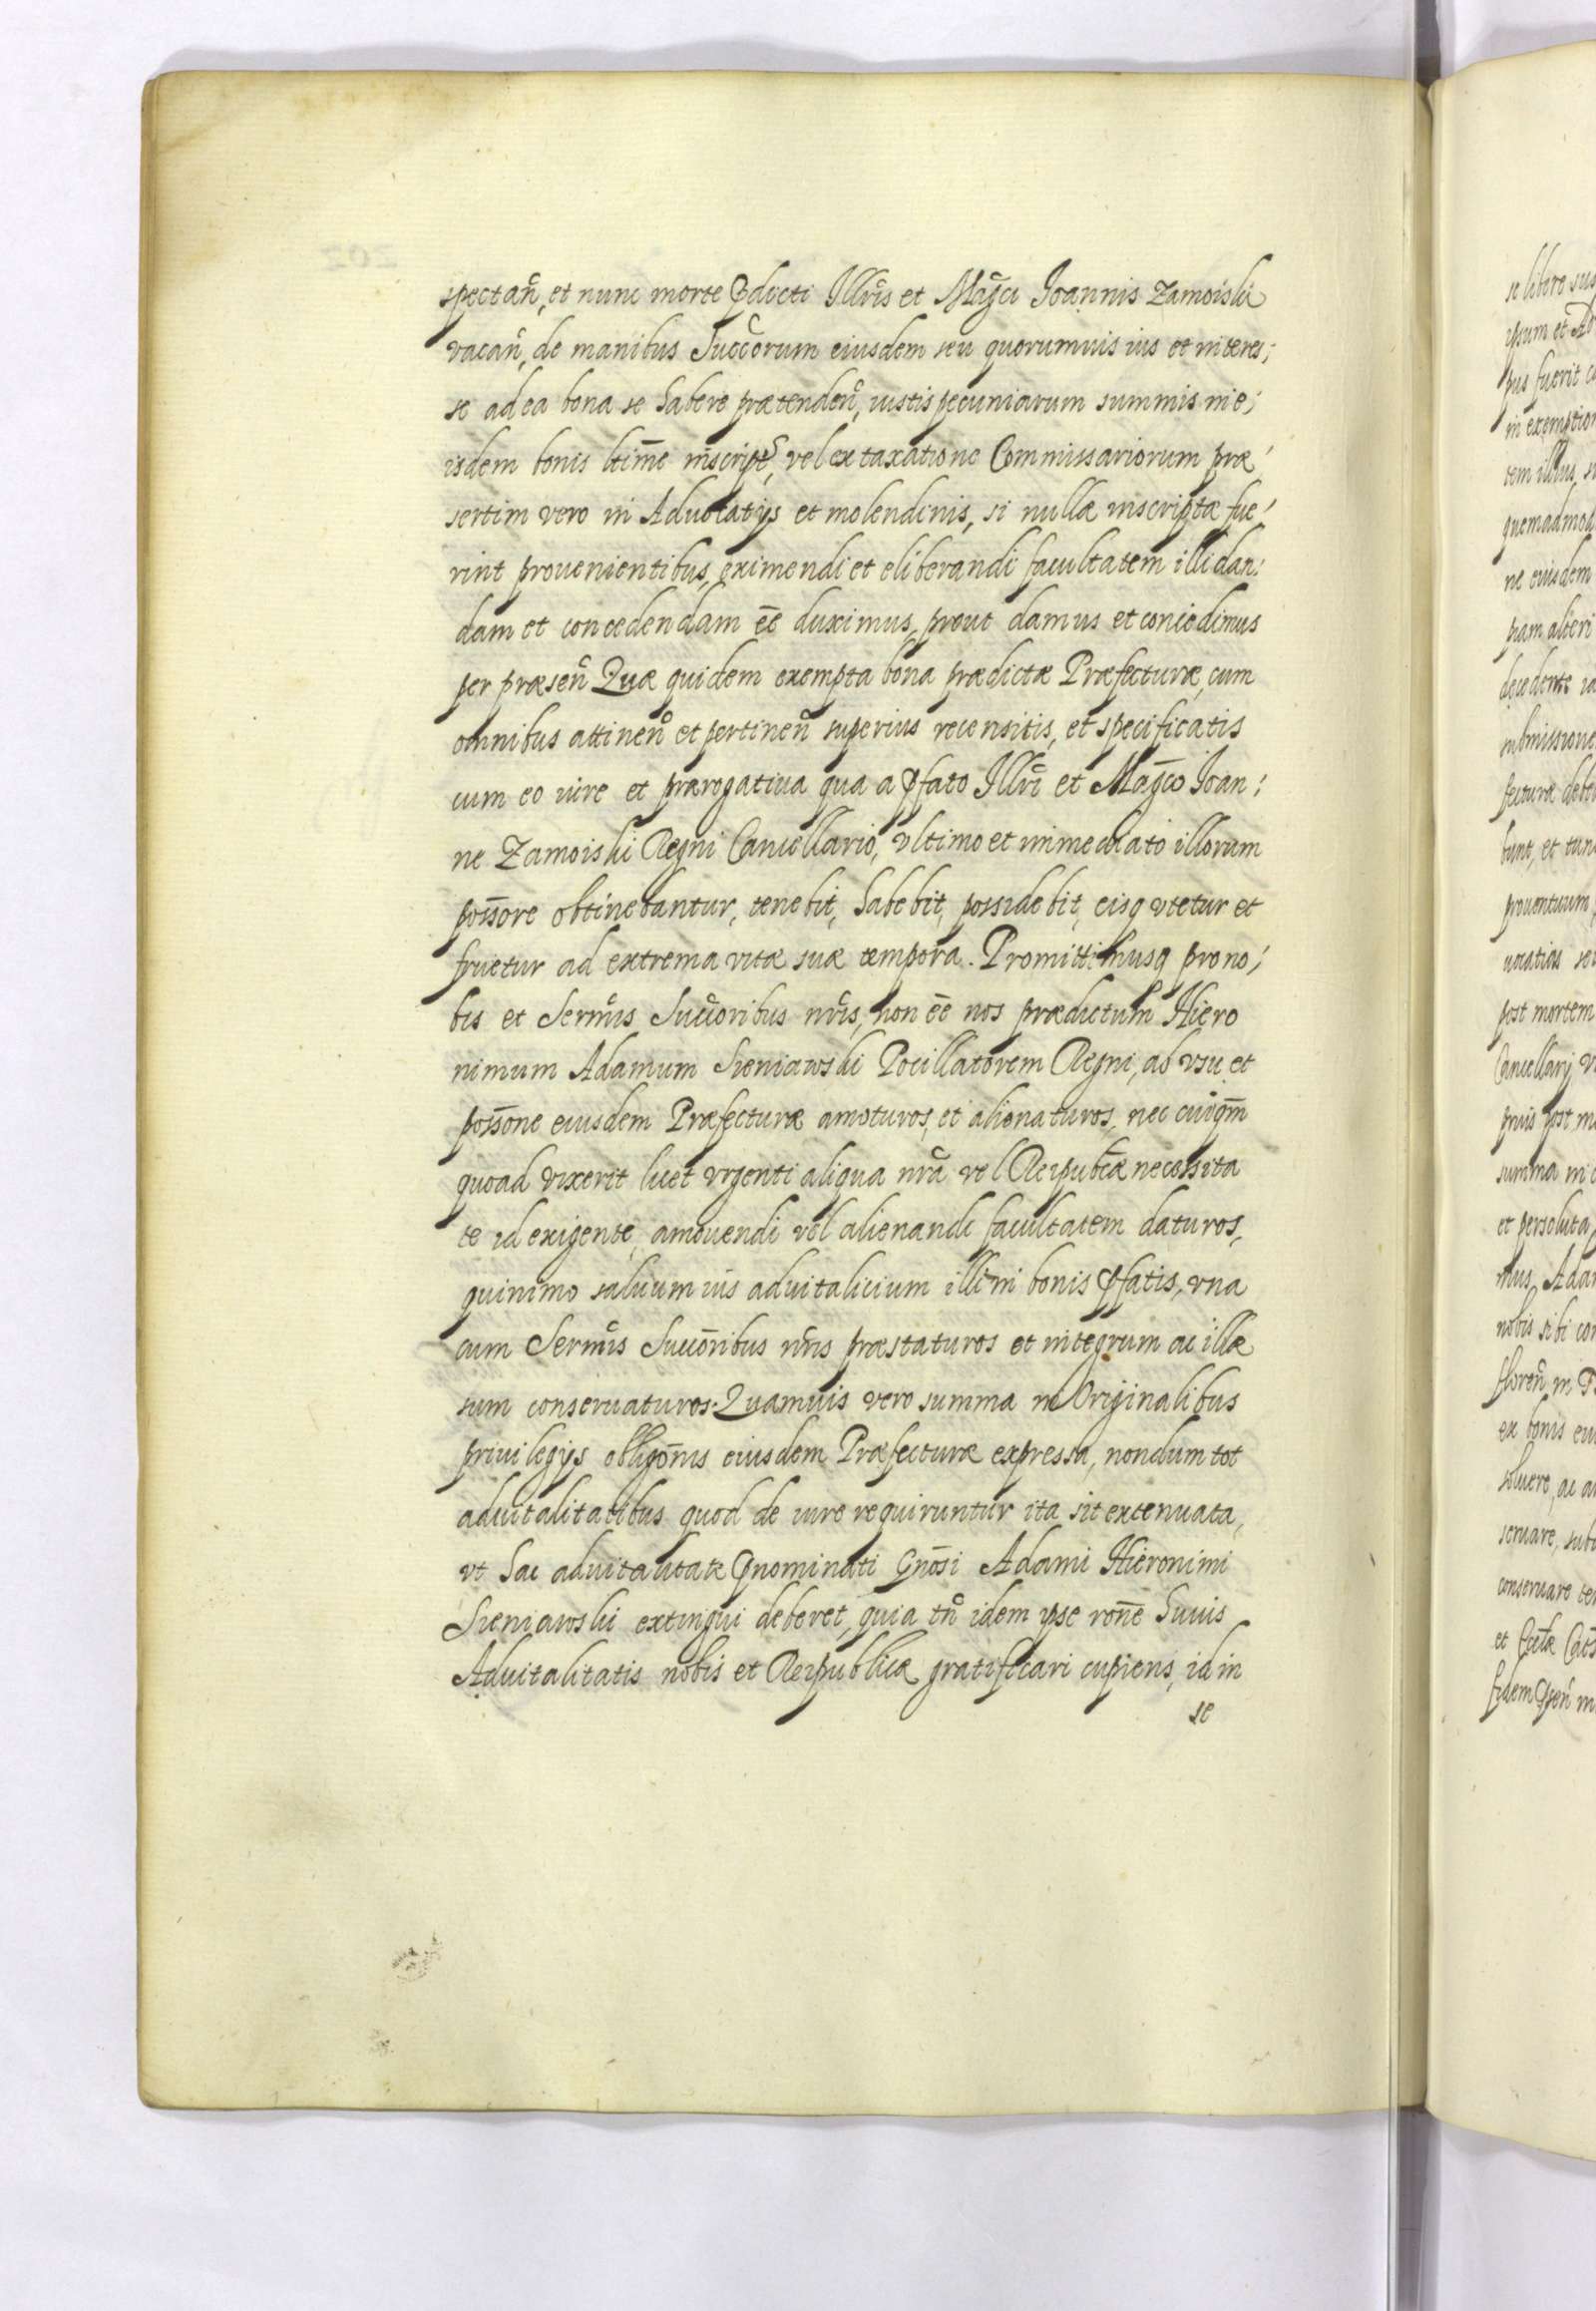 spectan̄, et nunc morte p̄dicti Illrīs et Mag̃ci Joannis Zamoiski
vacan̄, de manibus Succorum eiusdem seu quorumuis ius et interes;
se ad ea bona se habere prætenden̄, iustis pecuniarum summis in e;
isdem bonis ltīme inscript, vel ex taxatione Commissariorum præ
sertim vero in Aduocatijs et molendinis, si nullæ inscriptæ fue
rint prouenientibus, eximendi et eliberandi facultatem illi dan:
dam et concedendam eē duximus, prout damus et concedimus
per præsen̄ Quæ quidem exempta bona prædictæ Præfecturæ, cum
omnibus attinen̄ et pertinen̄ superius recensitis, et specificatis
cum eo iure et prærogatiua qua a p̄fato Illrī et Mag̃co Ioan;
ne Zamoiski Regni Cancellario, vltimo et immediato illorum
possōre obtinebantur, tenebit, habebit, possidebit, eisq vtetur et
fruetur ad extrema vitæ suæ tempora. Promittimusq pro no;
bis et Sermīs Succoribus nrīs, non eē nos prædictum Hiero
nimum Adamum Sieniawski Pocillatorem Regni, ab vsu et
possōne eiusdem Præfecturæ amoturos, et alienaturos, nec cuiqm̄
quoad vixerit licet vrgenti aliqua nrā vel Reipubcæ necessita
te id exigente, amouendi vel alienandi facultatem daturos,
quinimo saluum ius aduitalicium illi in bonis p̄fatis, vna
cum Sermīs Succōribus nrīs præstaturos et integrum ac illæ
sum conseruaturos. Quamuis vero summa in Originalibus
priuilegijs obligōnis eiusdem Præfecturæ expressa, nondum tot
aduitalitatibus quod de iure requiruntur ita sit extenuata,
vt hac aduitalitate p̄nominati Gnōsi Adami Hieronimi
Sieniawski extingui deberet, quia tn̄ idem ipse ronē huius
Aduitalitatis nobis et Reipublicæ gratificari cupiens, id in
se